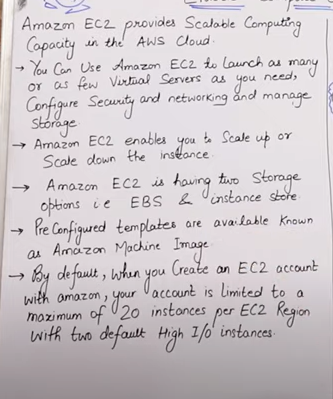 Amazon EC2 provides Scalable Computing
Capacity in the AWS Cloud.
→ You Can Use Amazon EC2 to Launch as many
or as few Virtual Servers as you need,
Configure Security and networking and manage
Storage.
→ Amazon EC2 enables you to Scale up or
Scale down the instance.
→ Amazon EC2 is having two Storage
options i.e EBS & instance store.
→ Pre Configured templates are available Known
as Amazon Machine Image.
→ By default, when you Create an EC2 account
with amazon, your account is limited to a
maximum of 20 instances per EC2 Region
with two default High I/O instances.